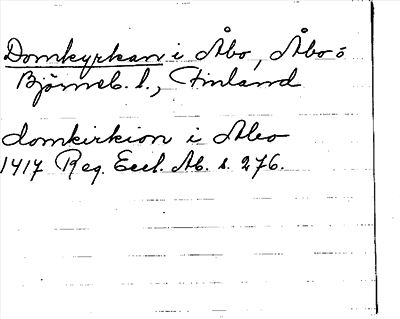 Domkyrkan i Åbo, Åbo o
Björneb. l., Finland
domkirkion i Abo
1417 Reg. Eccl. Ab. s. 276.